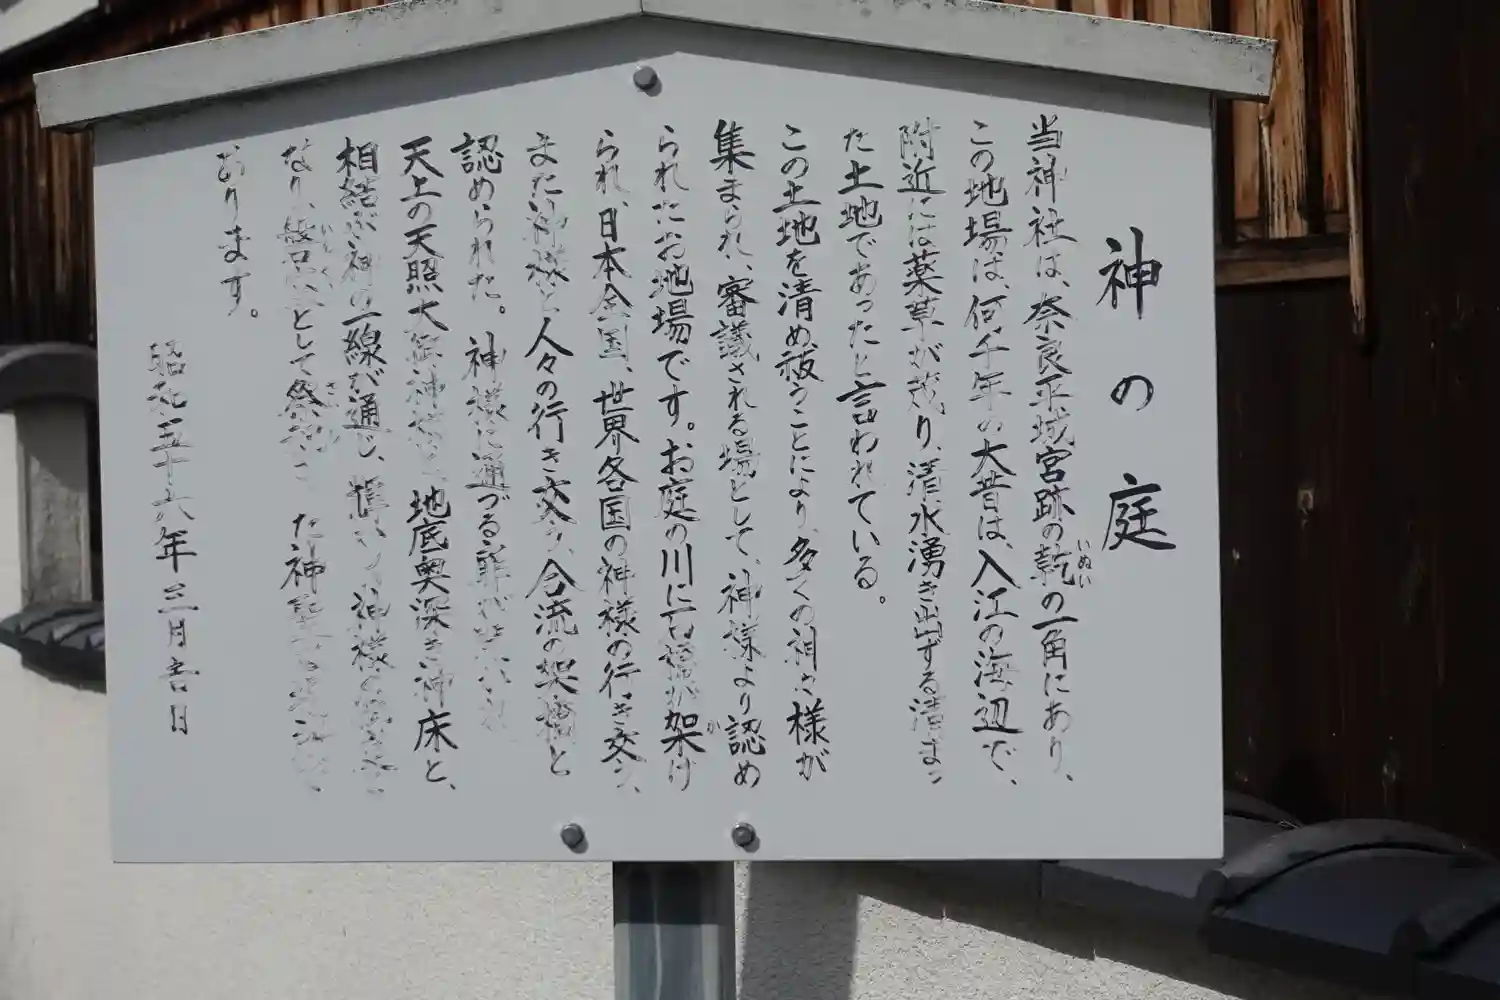 神の庭
当神社は、奈良平城宮跡の乾の一角にあり、
いぬい
この地場は、何千年の大昔は、入江の海辺で、
附近には薬草が茂り、清水湧き出ずる清まっ
た土地であったと言われている。
この土地を清め、祓うことにより、多くの神々様が
集まられ、審議される場として、神様より認め
られたお地場です。お庭の川に石橋が架け
か
られ、日本全国、世界各国の神様の行き交う、
また神様と人々の行き交う、合流の架橋と
認められた。神様に通づる
天上の天照大御神様と、地底奥深き神床と、
相結ぶ神の一線が通じ、神様の
なり、として祭た神
おります。
昭和五十六年三月吉日